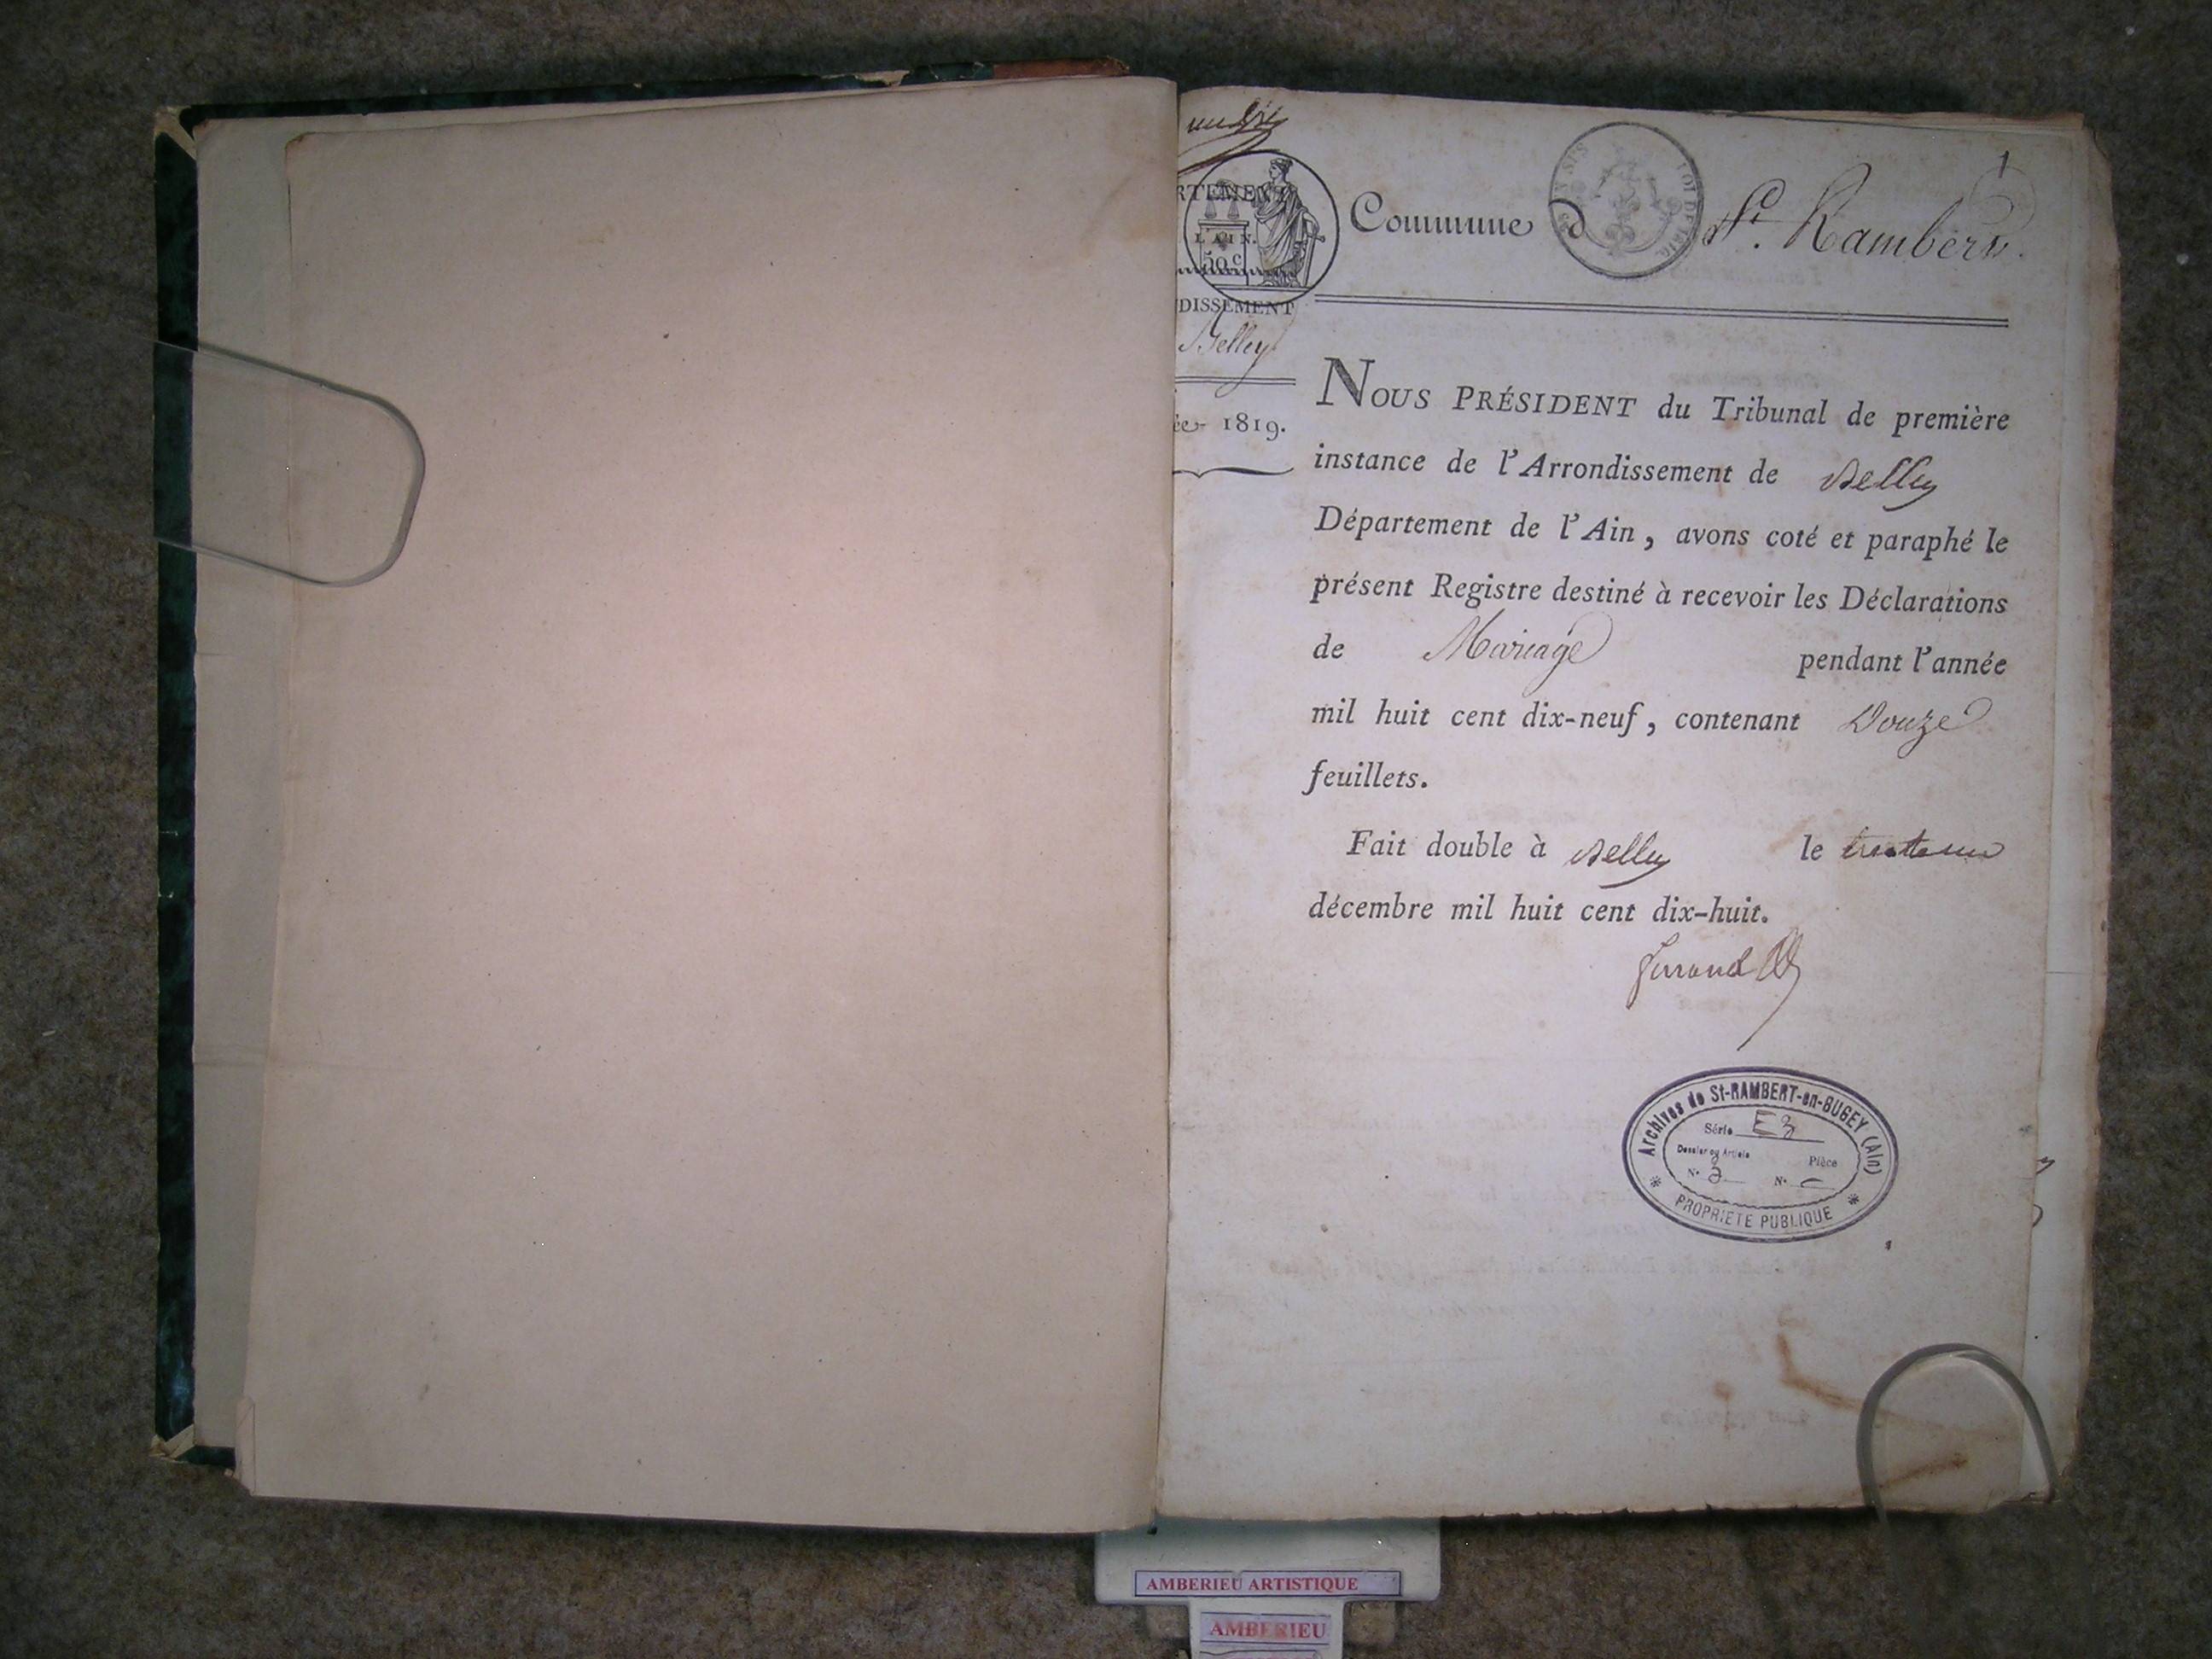 1
RTEMENT
L'AIN.
50 c.
DISSEMENT
Belley
ée 1819.
Commune d St. Rambert.
NOUS PRÉSIDENT du Tribunal de première
instance de l'Arrondissement de Belley
Département de l'Ain, avons coté et paraphé le
présent Registre destiné à recevoir les Déclarations
de Mariage pendant l'année
mil huit cent dix-neuf, contenant Douze
feuillets.
Fait double à Belley le trente un
décembre mil huit cent dix-huit.
Archives de St-RAMBERT-en-BUGEY (Ain)
Série E3
Dossier ou Article Pièce
N° 3 N°
PROPRIETE PUBLIQUE
AMBERIEU ARTISTIQUE
AMBERIEU